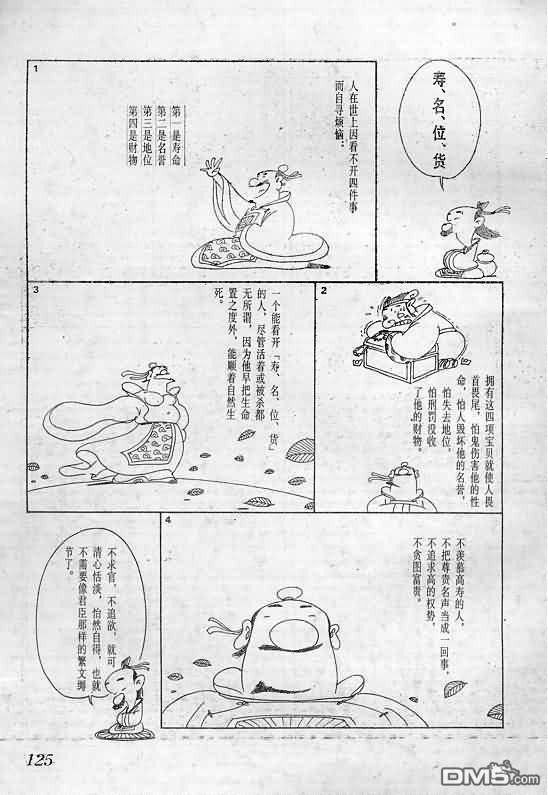 寿、名、位、货
1
人在世上因看不开四件事
而自寻烦恼：
第一是寿命
第二是名誉
第三是地位
第四是财物
2
拥有这四项宝贝就使人畏
首畏尾，怕鬼伤害他的性
命，怕人毁坏他的名誉，
怕失去地位，
怕刑罚没收
了他的财物。
3
一个能看开「寿、名、位、货」
的人，尽管活着或被杀都
无所谓，因为他早把生命
置之度外，能顺着自然生
死。
4
不羡慕高寿的人，
不把尊贵名声当成一回事，
不追求高的权势，
不贪图富贵。
不求官，不追欲，就可
清心恬淡，怡然自得，也就
不需要像君臣那样的繁文缛
节了。
125
DM5.com